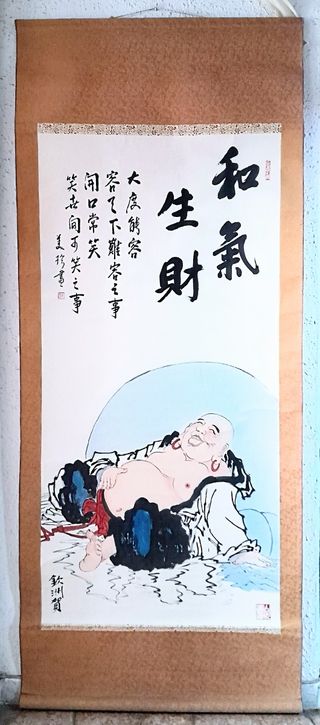 和氣
生財
大度能容
容天下難容之事
開口常笑
笑世間可笑之事